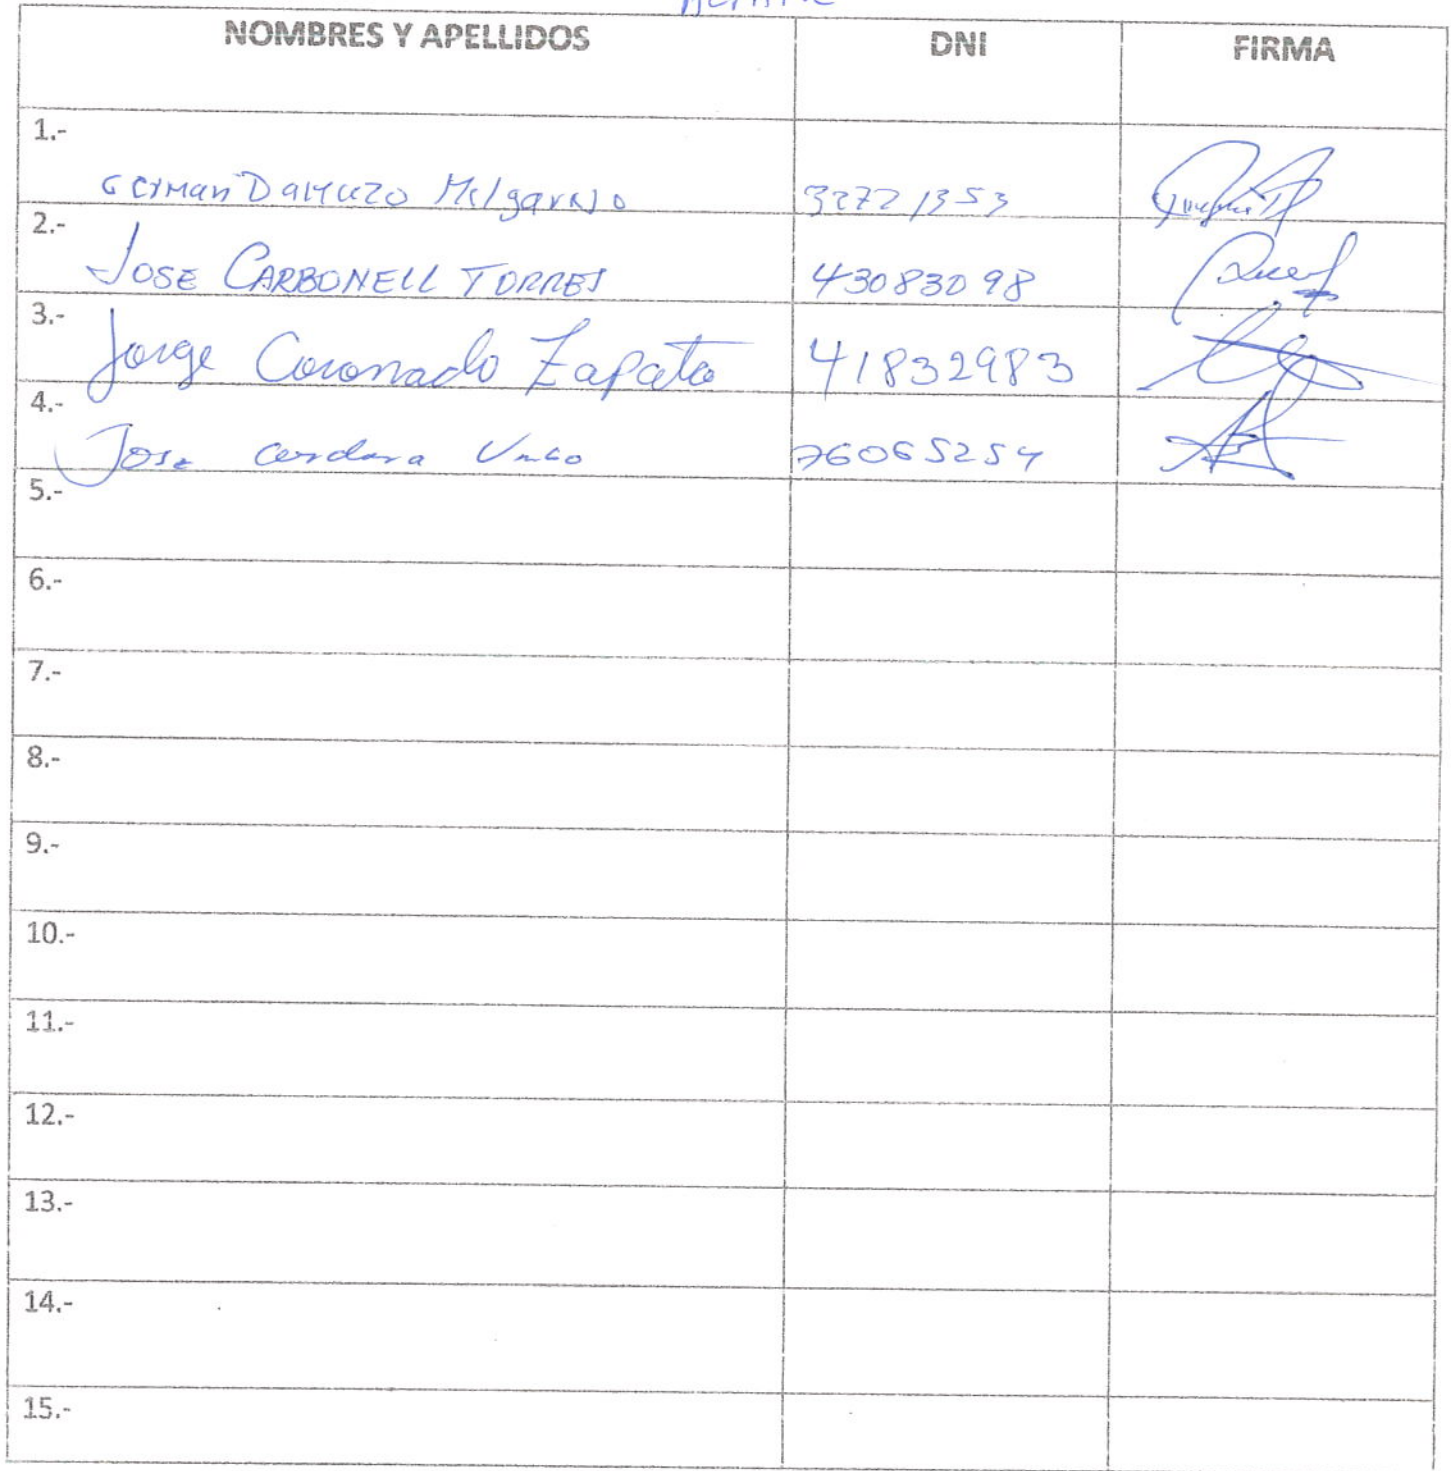 NOMBRES Y APELLIDOS DNI FIRMA
1.-
German Melgarejo 32721353
2.-
JOSE CARBONELL TORRES 43083098
3.-
Jorge Coronado Zapata 41832983
4.-
Jose 76065254
5.-
6.-
7.-
8.-
9.-
10.-
11.-
12.-
13.-
14.-
15.-